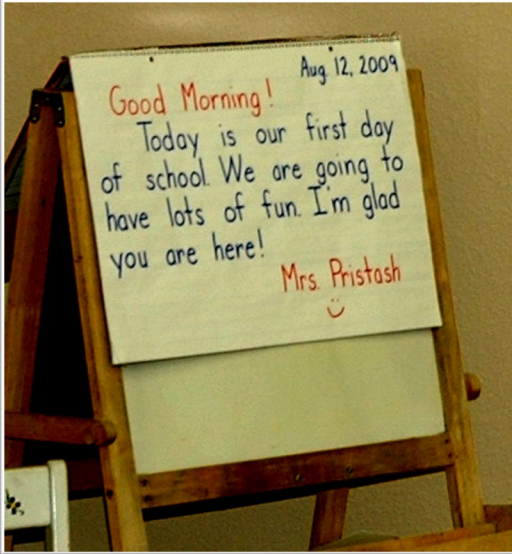 Aug. 12, 2009
Good Morning!
Today is our first day
of school. We are going to
have lots of fun. I'm glad
you are here!
Mrs. Pristash